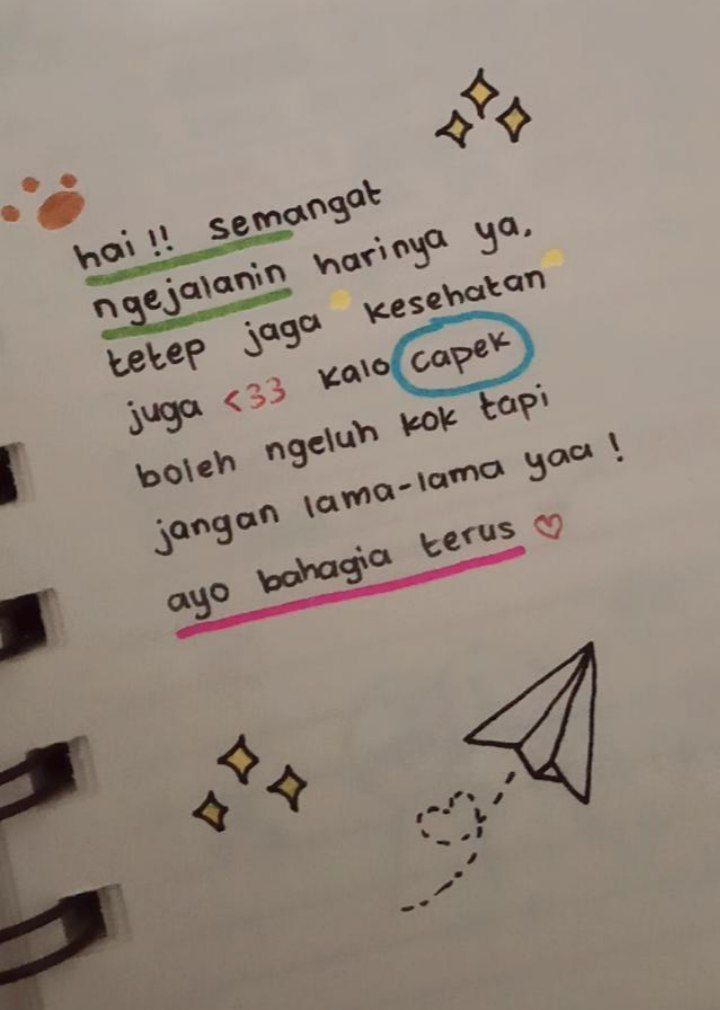 hai !! semangat
ngejalanin harinya ya,
tetep jaga kesehatan
juga <33 kalo capek
boleh ngeluh kok tapi
jangan lama-lama yaa !
ayo bahagia terus ♡